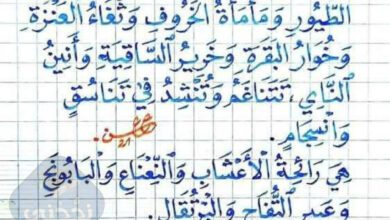 الطُّيُورِ وَمَأْمَأَةُ الْخَرُوفِ وَثُغَاءُ الْعَنْزَةِ
وَخُوَارُ الْبَقَرَةِ وَخَرِيرُ السَّاقِيَةِ وَأَنِينُ
النَّايِ، تَتَنَاغَمُ وَتُنْشِدُ فِي تَنَاسُقٍ
وَانْسِجَامٍ.
هِيَ رَائِحَةُ الْأَعْشَابِ وَالنَّعْنَاعِ وَالْبَابُونَجِ
وَعَبِيرِ التُّفَّاحِ وَالْبُرْتُقَالِ.